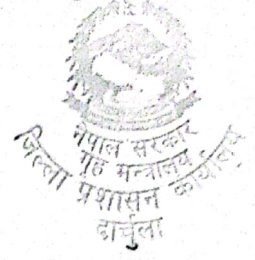 नेपाल सरकार
गृह मन्त्रालय
जिल्ला प्रशासन कार्यालय
दार्चुला